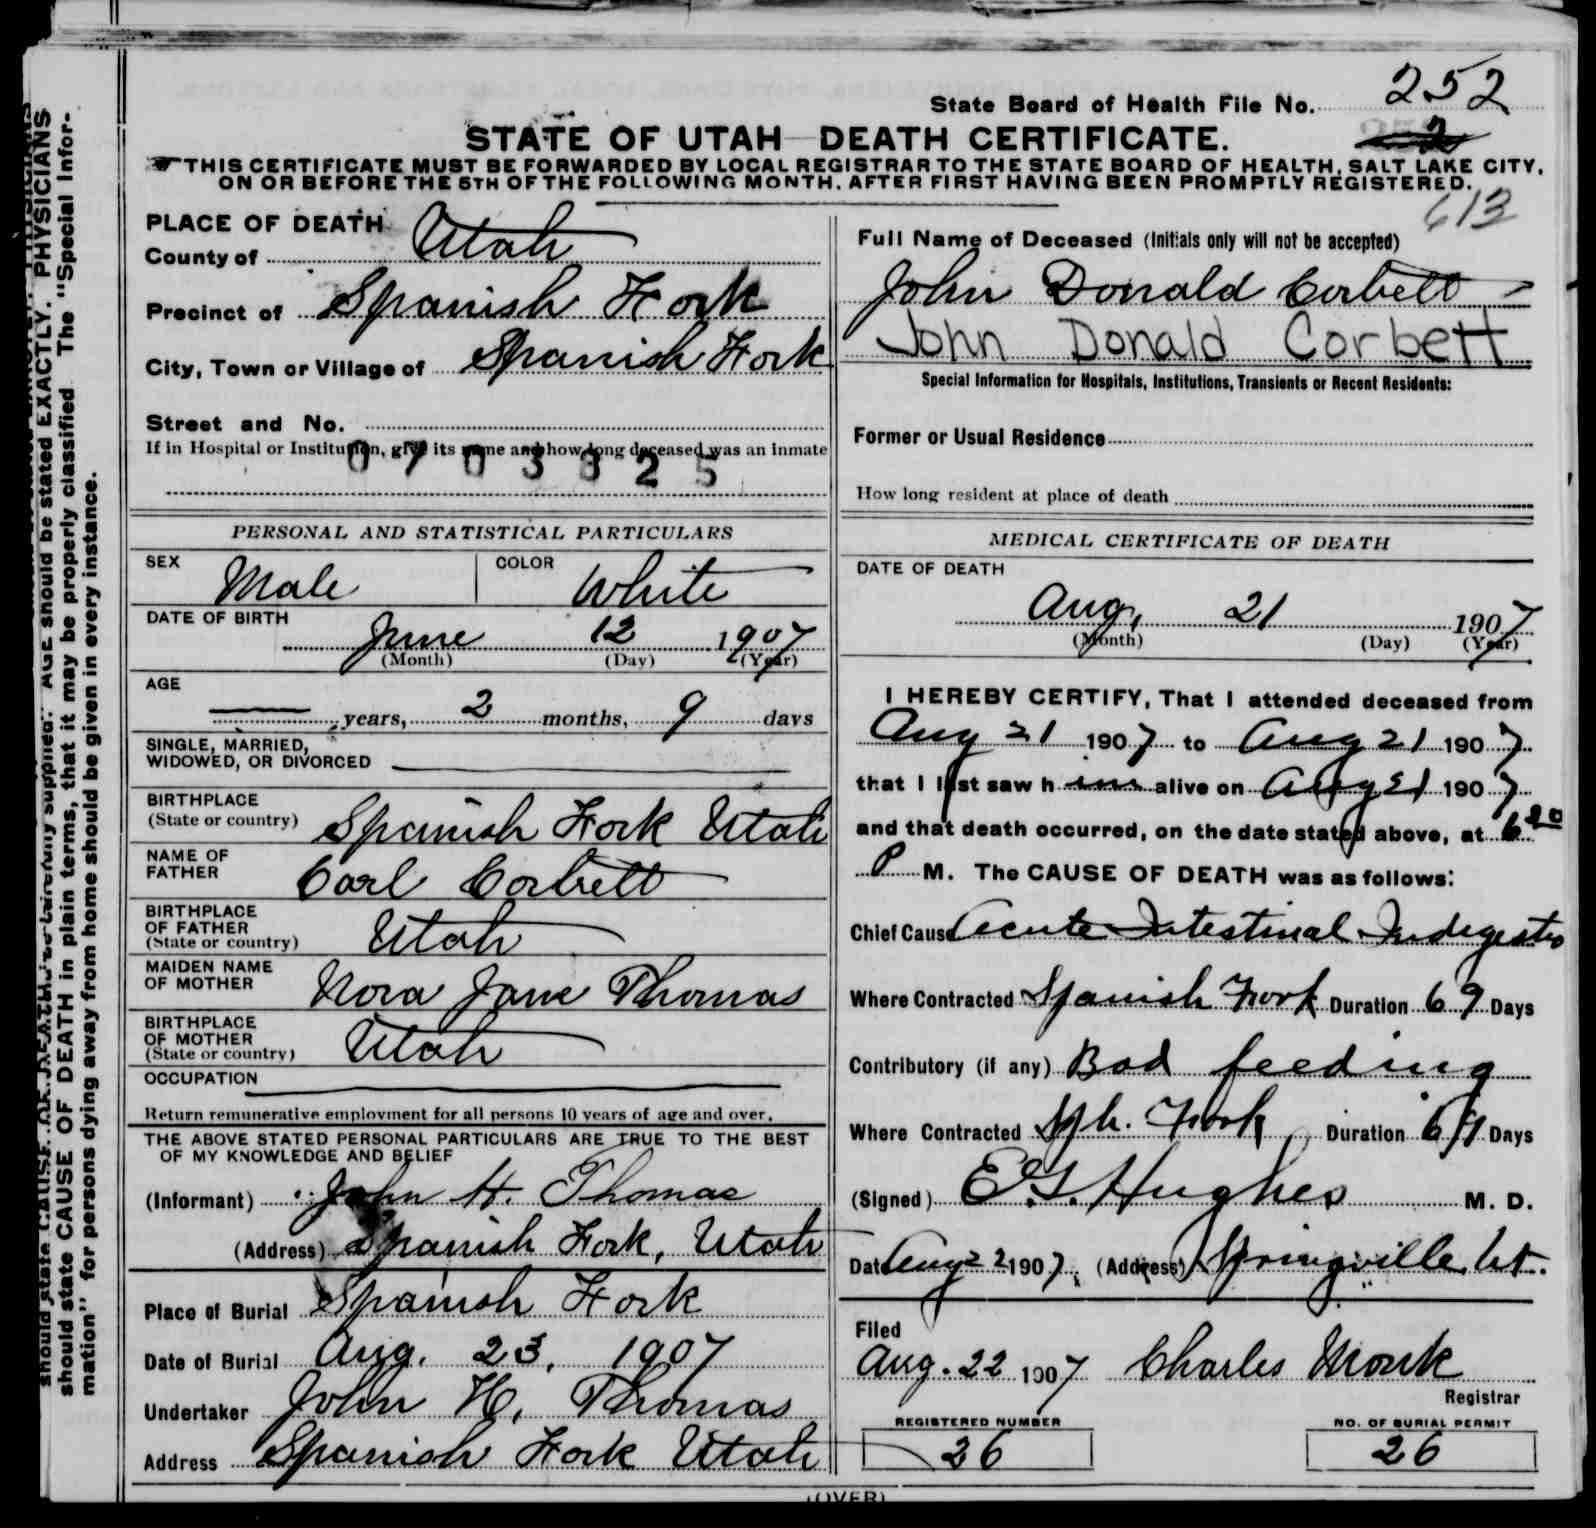 State Board of Health File No. 252
STATE OF UTAH—DEATH CERTIFICATE.
2
THIS CERTIFICATE MUST BE FORWARDED BY LOCAL REGISTRAR TO THE STATE BOARD OF HEALTH, SALT LAKE CITY,
ON OR BEFORE THE 5TH OF THE FOLLOWING MONTH, AFTER FIRST HAVING BEEN PROMPTLY REGISTERED.
613
PLACE OF DEATH
County of Utah
Precinct of Spanish Fork
City, Town or Village of Spanish Fork
Street and No.
If in Hospital or Institution, give its name and how long deceased was an inmate
0703325
PERSONAL AND STATISTICAL PARTICULARS
SEX Male COLOR White
DATE OF BIRTH
June 12 1907
(Month) (Day) (Year)
AGE
years, 2 months, 9 days
SINGLE, MARRIED,
WIDOWED, OR DIVORCED
BIRTHPLACE
(State or country) Spanish Fork Utah
NAME OF
FATHER Carl Corbett
BIRTHPLACE
OF FATHER
(State or country) Utah
MAIDEN NAME
OF MOTHER Nora Jane Thomas
BIRTHPLACE
OF MOTHER
(State or country) Utah
OCCUPATION
Return remunerative employment for all persons 10 years of age and over.
THE ABOVE STATED PERSONAL PARTICULARS ARE TRUE TO THE BEST
OF MY KNOWLEDGE AND BELIEF
(Informant) John H. Thomas
(Address) Spanish Fork, Utah
Place of Burial Spanish Fork
Date of Burial Aug. 23, 1907
Undertaker John H. Thomas
Address Spanish Fork Utah
Full Name of Deceased (Initials only will not be accepted)
John Donald Corbett
John Donald Corbett
Special Information for Hospitals, Institutions, Transients or Recent Residents:
Former or Usual Residence
How long resident at place of death
MEDICAL CERTIFICATE OF DEATH
DATE OF DEATH
Aug, 21 1907
(Month) (Day) (Year)
I HEREBY CERTIFY, That I attended deceased from
Aug 21 1907 to Aug 21 1907
that I last saw him alive on Aug 21 1907
and that death occurred, on the date stated above, at 6
P M. The CAUSE OF DEATH was as follows:
Chief Cause Acute Intestinal Indigestio
Where Contracted Spanish Fork Duration 69 Days
Contributory (if any) Bad feeding
Where Contracted Sph. Fork Duration 69 Days
(Signed) E.G. Hughes M. D.
Date Aug 22 1907, (Address) Springville Ut.
Filed
Aug. 22 1907 Charles Monk
Registrar
REGISTERED NUMBER
26
NO. OF BURIAL PERMIT
26
(OVER)
AGE should be stated EXACTLY. PHYSICIANS
should state CAUSE OF DEATH in plain terms, that it may be properly classified. The "Special Infor-
mation" for persons dying away from home should be given in every instance.